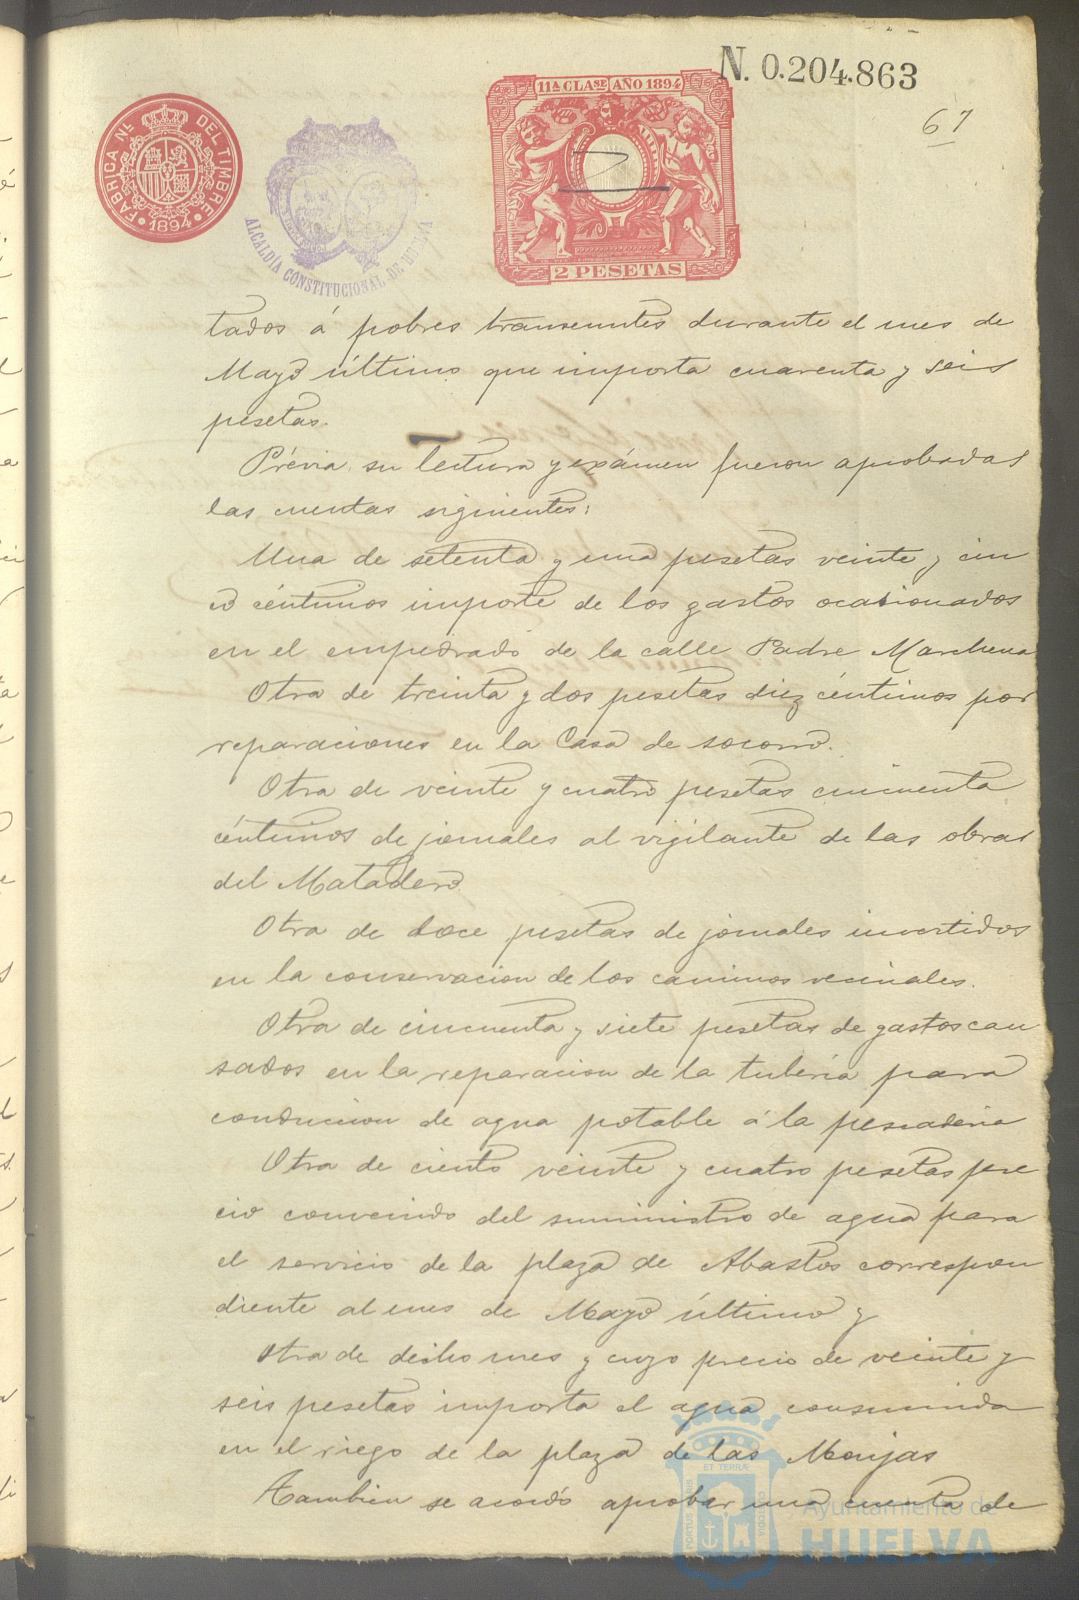 N. 0.204.863
67
11ª CLASE AÑO 1894
2 PESETAS
FABRICA NL. DEL TIMBRE
1894
ALCALDÍA CONSTITUCIONAL DE HUELVA
tados á pobres transeuntes durante el mes de
Mayo último que importa cuarenta y seis
pesetas.
Prévia su lectura y exámen fueron aprobadas
las cuentas siguientes:
Una de setenta y una pesetas veinte y cin
co céntimos importe de los gastos ocasionados
en el empedrado de la calle Padre Marchena
Otra de treinta y dos pesetas diez céntimos por
reparaciones en la Casa de socorro.
Otra de veinte y cuatro pesetas cincuenta
céntimos de jornales al vigilante de las obras
del Matadero.
Otra de doce pesetas de jornales invertidos
en la conservacion de los caminos vecinales.
Otra de cincuenta y siete pesetas de gastos cau
sados en la reparacion de la tuberia para
conduccion de agua potable á la pescaderia
Otra de ciento veinte y cuatro pesetas pre
cio convenido del suministro de agua para
el servicio de la plaza de Abastos correspon
diente al mes de Mayo último y
Otra de dicho mes y cuyo precio de veinte y
seis pesetas importa el agua consumida
en el riego de la plaza de las Monjas
Tambien se acordó aprobar una cuenta de
PORTUS MARIS ET TERRÆ CUSTODIA
Ayuntamiento de
HUELVA